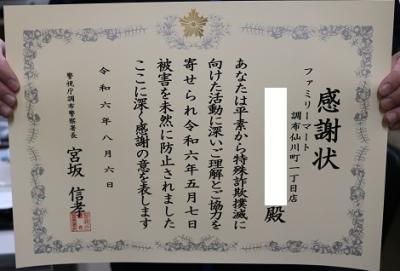 感謝状
ファミリーマート
調布仙川町一丁目店
殿
あなたは平素から特殊詐欺撲滅に
向けた活動に深いご理解とご協力を
寄せられ令和六年五月七日
被害を未然に防止されました
ここに深く感謝の意を表します
令和六年八月六日
警視庁調布警察署長
宮坂信孝